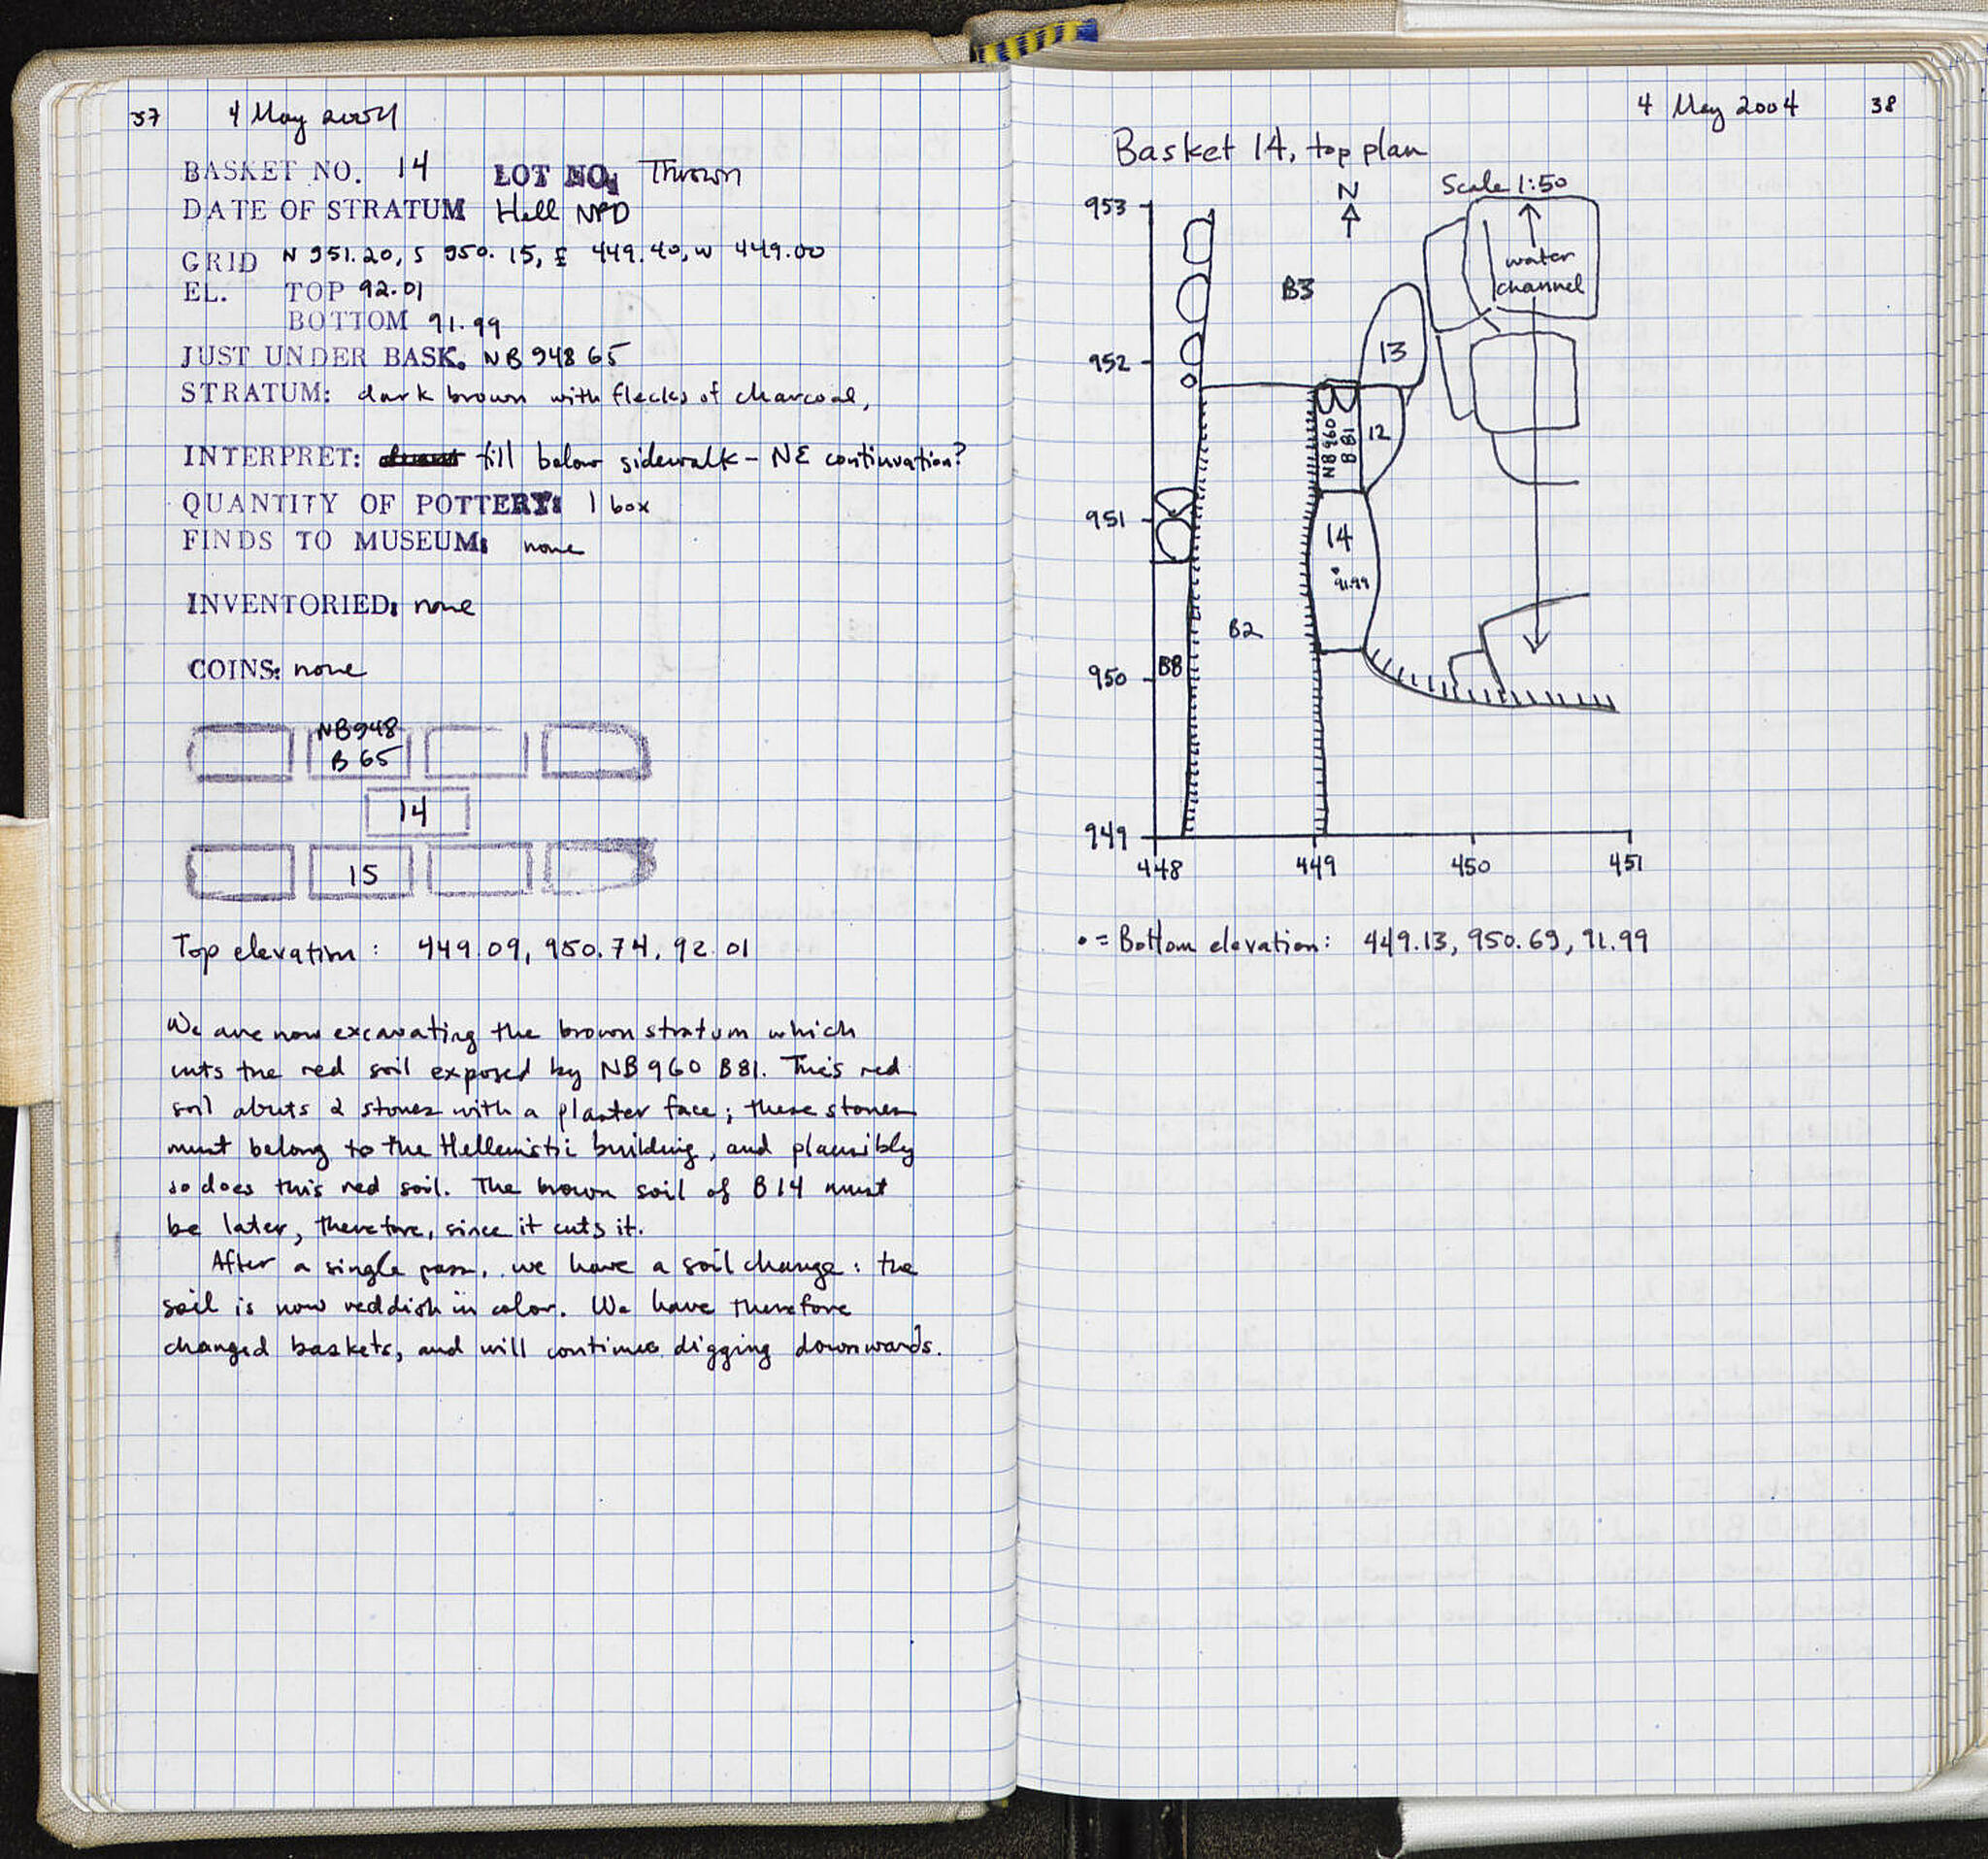 37 4 May 2004
BASKET NO. 14 LOT NO. Thrown
DATE OF STRATUM Hell NPD
GRID N 951.20, S 950.15, E 449.40, W 449.00
EL. TOP 92.01
BOTTOM 91.99
JUST UNDER BASK. NB 948 65
STRATUM: dark brown with flecks of charcoal,
INTERPRET: fill below sidewalk - NE continuation?
QUANTITY OF POTTERY: 1 box
FINDS TO MUSEUM: none
INVENTORIED: none
COINS: none
NB948
B 65
14
15
Top elevation: 449.09, 950.74, 92.01
We are now excavating the brown stratum which
cuts the red soil exposed by NB 960 B81. This red
soil abuts 2 stones with a plaster face; these stones
must belong to the Hellenistic building, and plausibly
so does this red soil. The brown soil of B14 must
be later, therefore, since it cuts it.
After a single pass, we have a soil change: the
soil is now reddish in color. We have therefore
changed baskets, and will continue digging downwards.
4 May 2004 38
Basket 14, top plan
Scale 1:50
N
953
water
channel
B3
952
13
NB 960
B 81
12
951
14
91.99
B2
950
B8
949
448 449 450 451
• = Bottom elevation: 449.13, 950.69, 91.99